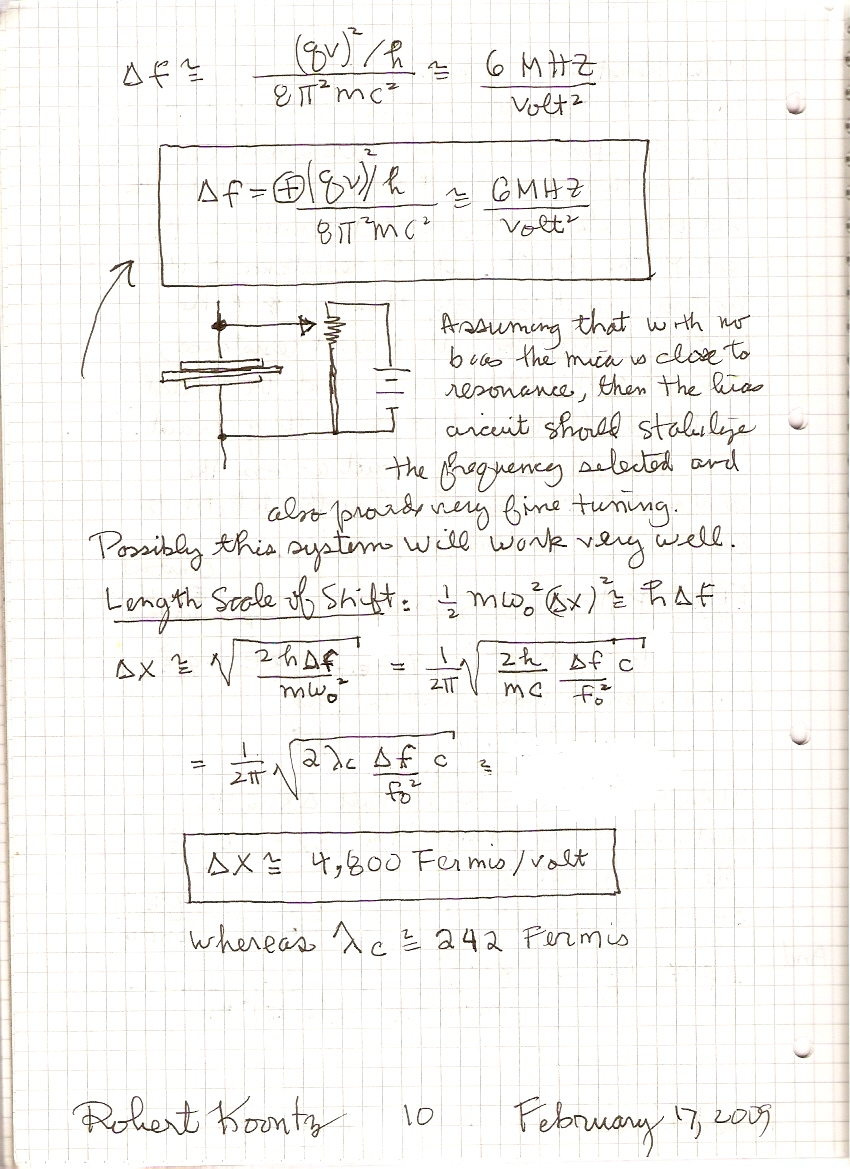 Δf ≅ (qv)²/h / 8π²mc² ≅ 6 MHZ / Volt²
Δf = ⊕(qv)²/h / 8π²mc² ≅ 6MHZ / Volt²
Assuming that with no
bias the mica is close to
resonance, then the bias
circuit should stabilize
the frequency selected and
also provide very fine tuning.
Possibly this system will work very well.
Length Scale of Shift: ½ mω₀²(Δx)² ≅ ħΔf
Δx ≅ √(2hΔf / mω₀²) = 1/2π √(2h/mc Δf/f₀² c)
= 1/2π √(2λc Δf/f₀² c) ≅
Δx ≅ 4,800 Fermis/volt
whereas λc ≅ 242 Fermis
Robert Koontz 10 February 17, 2009